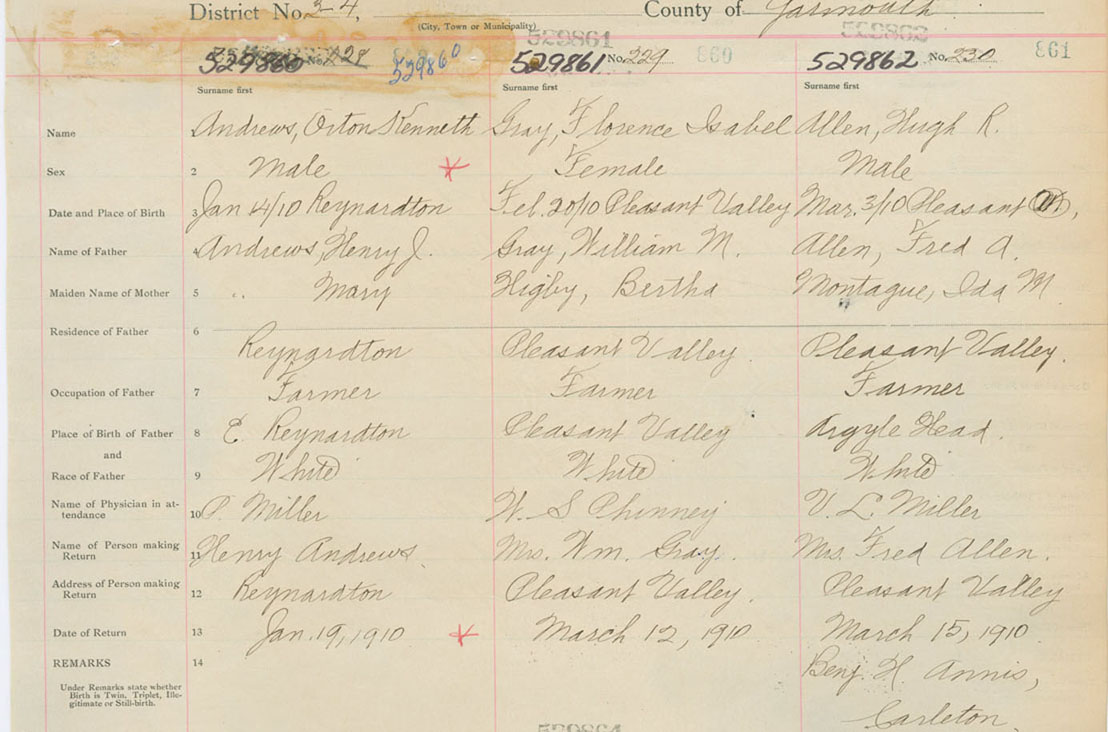 District No. 24, County of Yarmouth
(City, Town or Municipality)
529861 529862
529860 No. 228 529860 529861 No. 229 860 529862 No. 230 861
Surname first Surname first Surname first
Name 1 Andrews, Orton Kenneth Gray, Florence Isabel Allen, Hugh R.
Sex 2 Male Female Male
Date and Place of Birth 3 Jan 4/10 Reynardton Feb. 20/10 Pleasant Valley Mar. 3/10 Pleasant
Name of Father 4 Andrews, Henry J. Gray, William M. Allen, Fred A.
Maiden Name of Mother 5 " Mary Higby, Bertha Montague, Ida M
Residence of Father 6
Reynardton Pleasant Valley Pleasant Valley.
Occupation of Father 7 Farmer Farmer Farmer
Place of Birth of Father 8 Reynardton Pleasant Valley Argyle Head.
and
Race of Father 9 White White White
Name of Physician in at-
tendance 10 P. Miller W. S Phinney V. L. Miller
Name of Person making
Return 11 Henry Andrews Mrs. Wm. Gray. Mrs. Fred Allen.
Address of Person making
Return 12 Reynardton Pleasant Valley. Pleasant Valley
Date of Return 13 Jan. 19, 1910 March 12, 1910 March 15, 1910
REMARKS 14 Benj. H. Annis,
Under Remarks state whether
Birth is Twin, Triplet, Ille-
gitimate or Still-birth.
Carleton.
529864